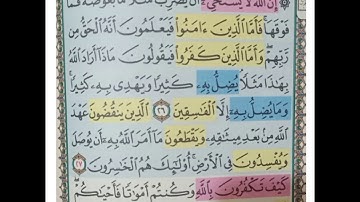 ۞ إِنَّ ٱللَّهَ لَا يَسْتَحْىِۦٓ أَن يَضْرِبَ مَثَلًا مَّا بَعُوضَةً فَمَا
فَوْقَهَا ۚ فَأَمَّا ٱلَّذِينَ ءَامَنُوا۟ فَيَعْلَمُونَ أَنَّهُ ٱلْحَقُّ مِن
رَّبِّهِمْ ۖ وَأَمَّا ٱلَّذِينَ كَفَرُوا۟ فَيَقُولُونَ مَاذَآ أَرَادَ ٱللَّهُ
بِهَٰذَا مَثَلًا ۘ يُضِلُّ بِهِۦ كَثِيرًا وَيَهْدِى بِهِۦ كَثِيرًا ۚ
وَمَا يُضِلُّ بِهِۦٓ إِلَّا ٱلْفَٰسِقِينَ ٢٦ ٱلَّذِينَ يَنقُضُونَ عَهْدَ
ٱللَّهِ مِنۢ بَعْدِ مِيثَٰقِهِۦ وَيَقْطَعُونَ مَآ أَمَرَ ٱللَّهُ بِهِۦٓ أَن يُوصَلَ
وَيُفْسِدُونَ فِى ٱلْأَرْضِ ۚ أُو۟لَٰٓئِكَ هُمُ ٱلْخَٰسِرُونَ ٢٧
كَيْفَ تَكْفُرُونَ بِٱللَّهِ وَكُنتُمْ أَمْوَٰتًا فَأَحْيَٰكُمْ